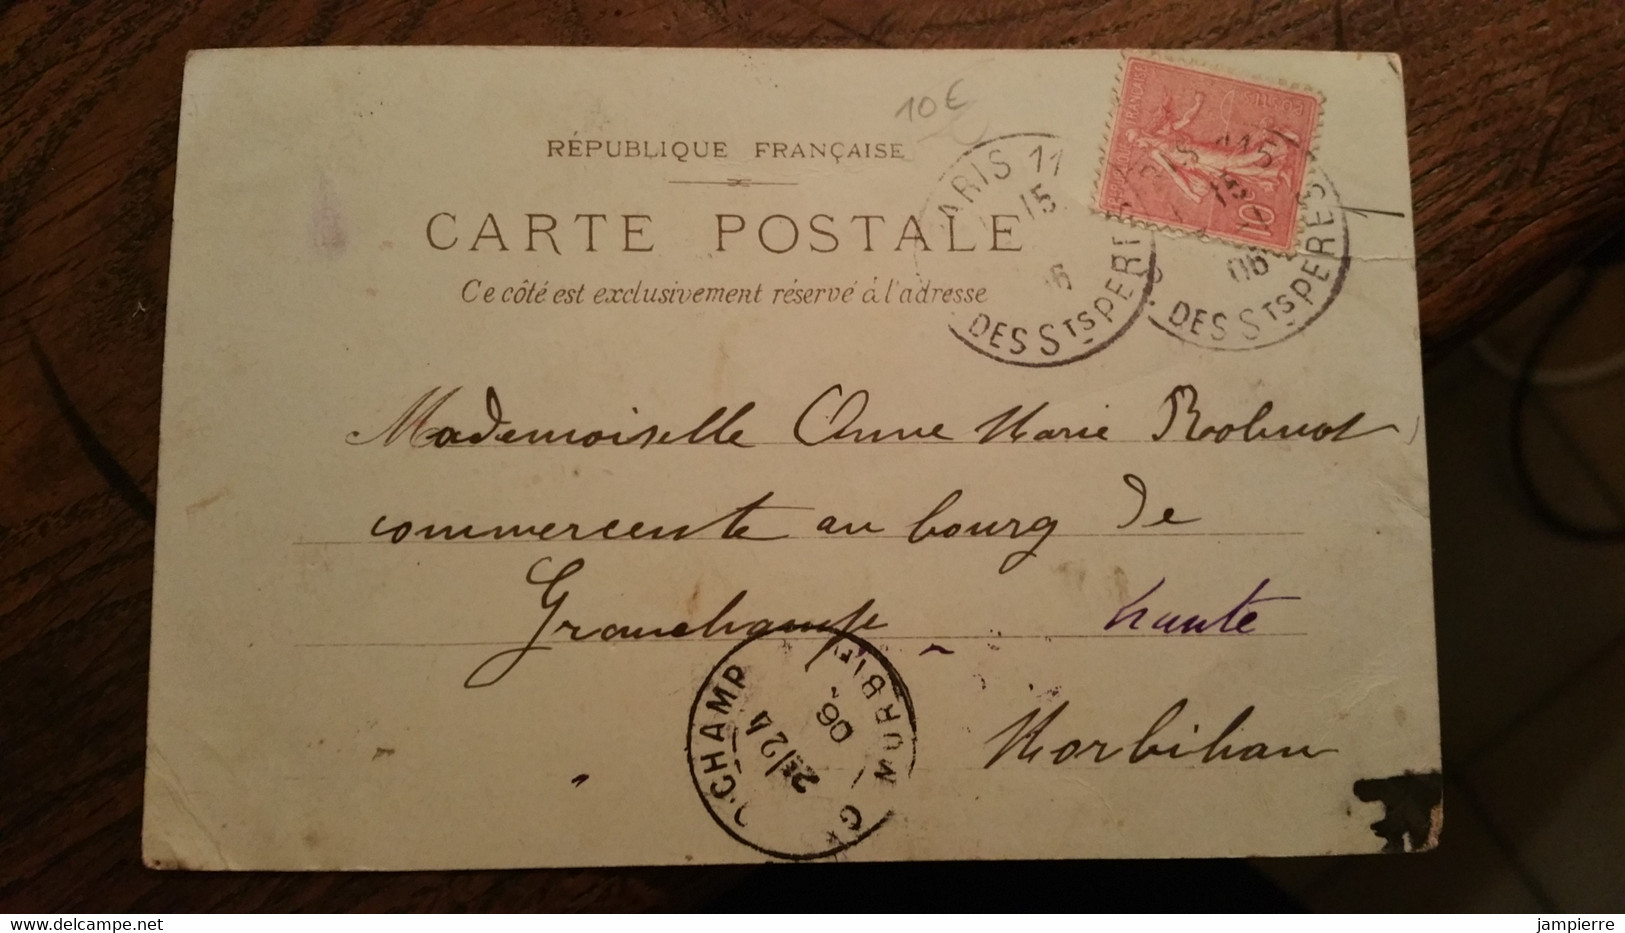 10€
RÉPUBLIQUE FRANÇAISE
CARTE POSTALE
Ce côté est exclusivement réservé à l'adresse
PARIS 11
15
06
DES Sts PERES
POSTES
FRANÇAISE
10
15
06
DES Sts PERES
Mademoiselle Anne Marie
commercente au bourg de
Grandchamp
Morbihan
CHAMP
24
06
MORBI
jampierre